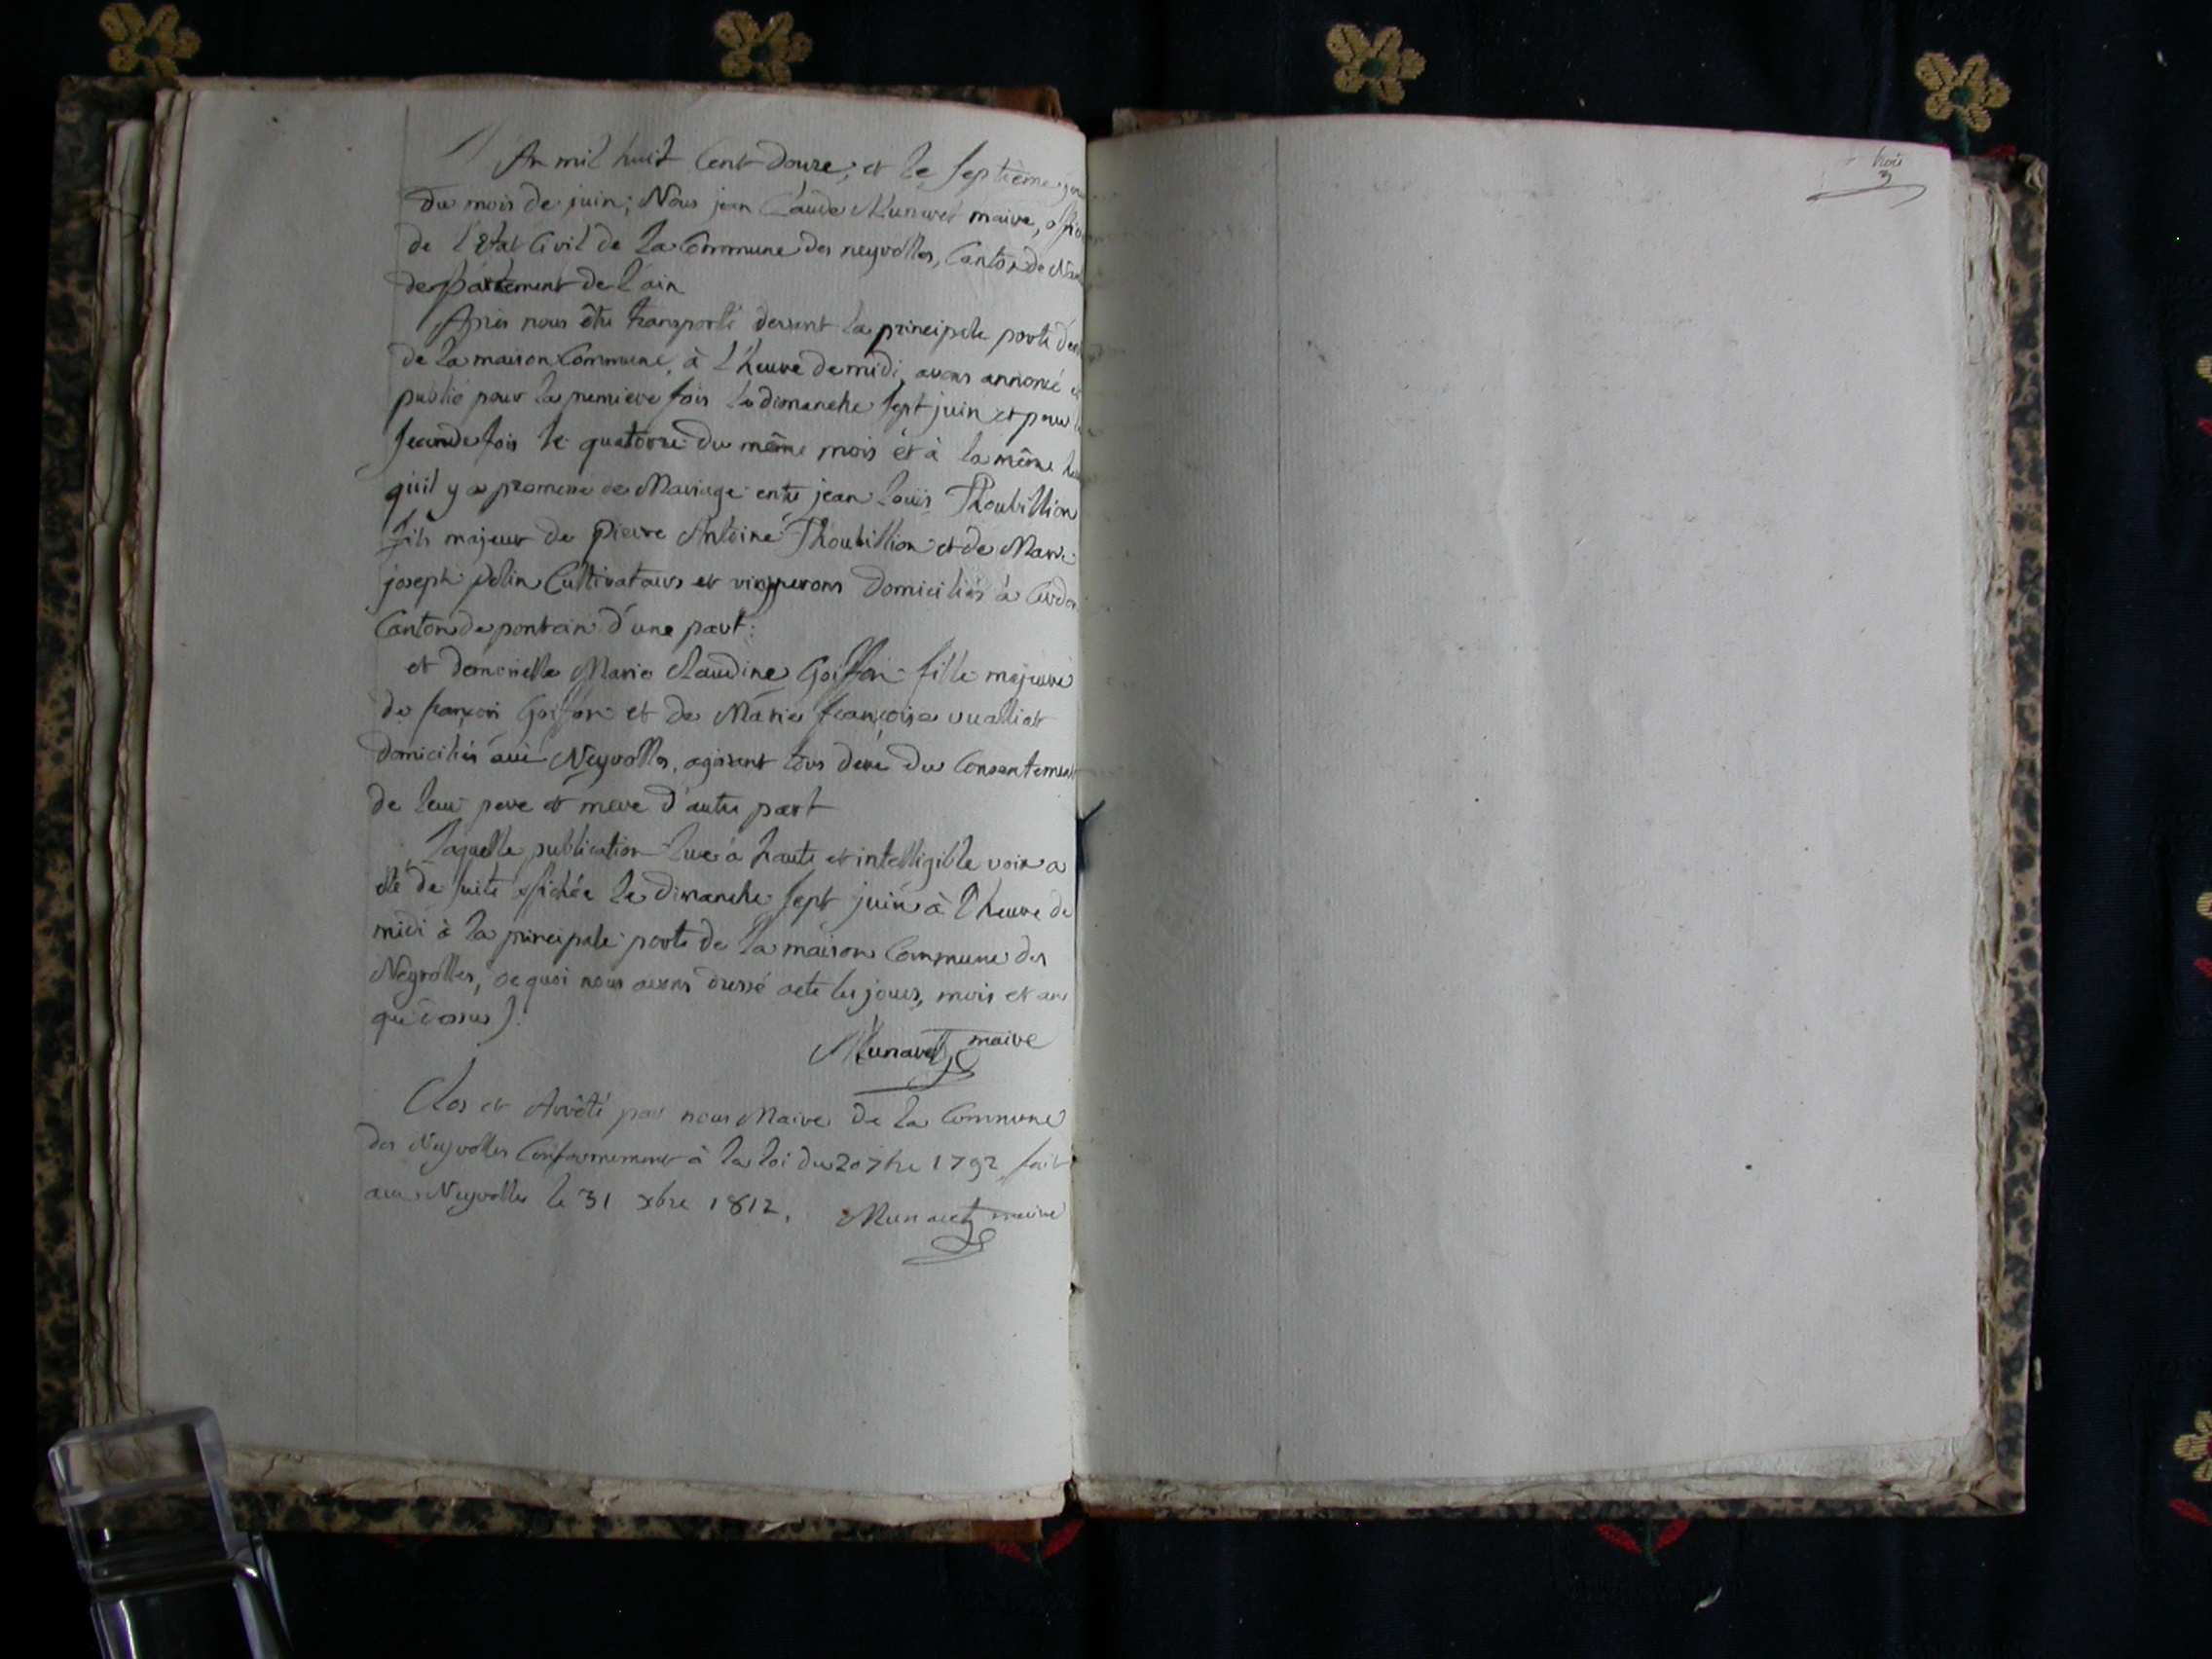 L'An mil huit Cent douze, et le septième jour
du mois de juin; Nous jean Claude Munaret maire, offic
de l'Etat Civil de la Commune des neyrolles, Canton de Nan
departement de l'ain
Après nous être transporté devant la principale porte d'en
de la maison Commune, à l'heure de midi, avons annoncé et
publié pour la premiere fois le dimanche sept juin et pour la
seconde fois le quatorze du même mois et à la même heu
quil y a promesse de Mariage entre jean Louis Thoubillion
fils majeur de pierre Antoine Thoubillion et de Marie
joseph Cultivateurs et vignerons domiciliés à Cerdon
Canton de pontain d'une part:
et demoiselle Marie Claudine Goiffon fille majeure
de françois Goiffon et de Marie françoise vualliat
domiciliés aux Neyrolles, agisant tous deux du Consentement
de leur pere et mere d'autre part
Laquelle publication lue à haute et intelligible voix a
été de suite afichée le dimanche sept juin à l'heure de
midi à la principale porte de la maison Commune des
Neyrolles, de quoi nous avons dressé acte les jours, mois et an
que dessus).
Munaret maire
Clos et Arrêté par nous Maire de la Commune
des Neyrolles Conformement à la loi du 20 7bre 1792 fait
aux Neyrolles le 31 xbre 1812. Munaret maire
trois
3